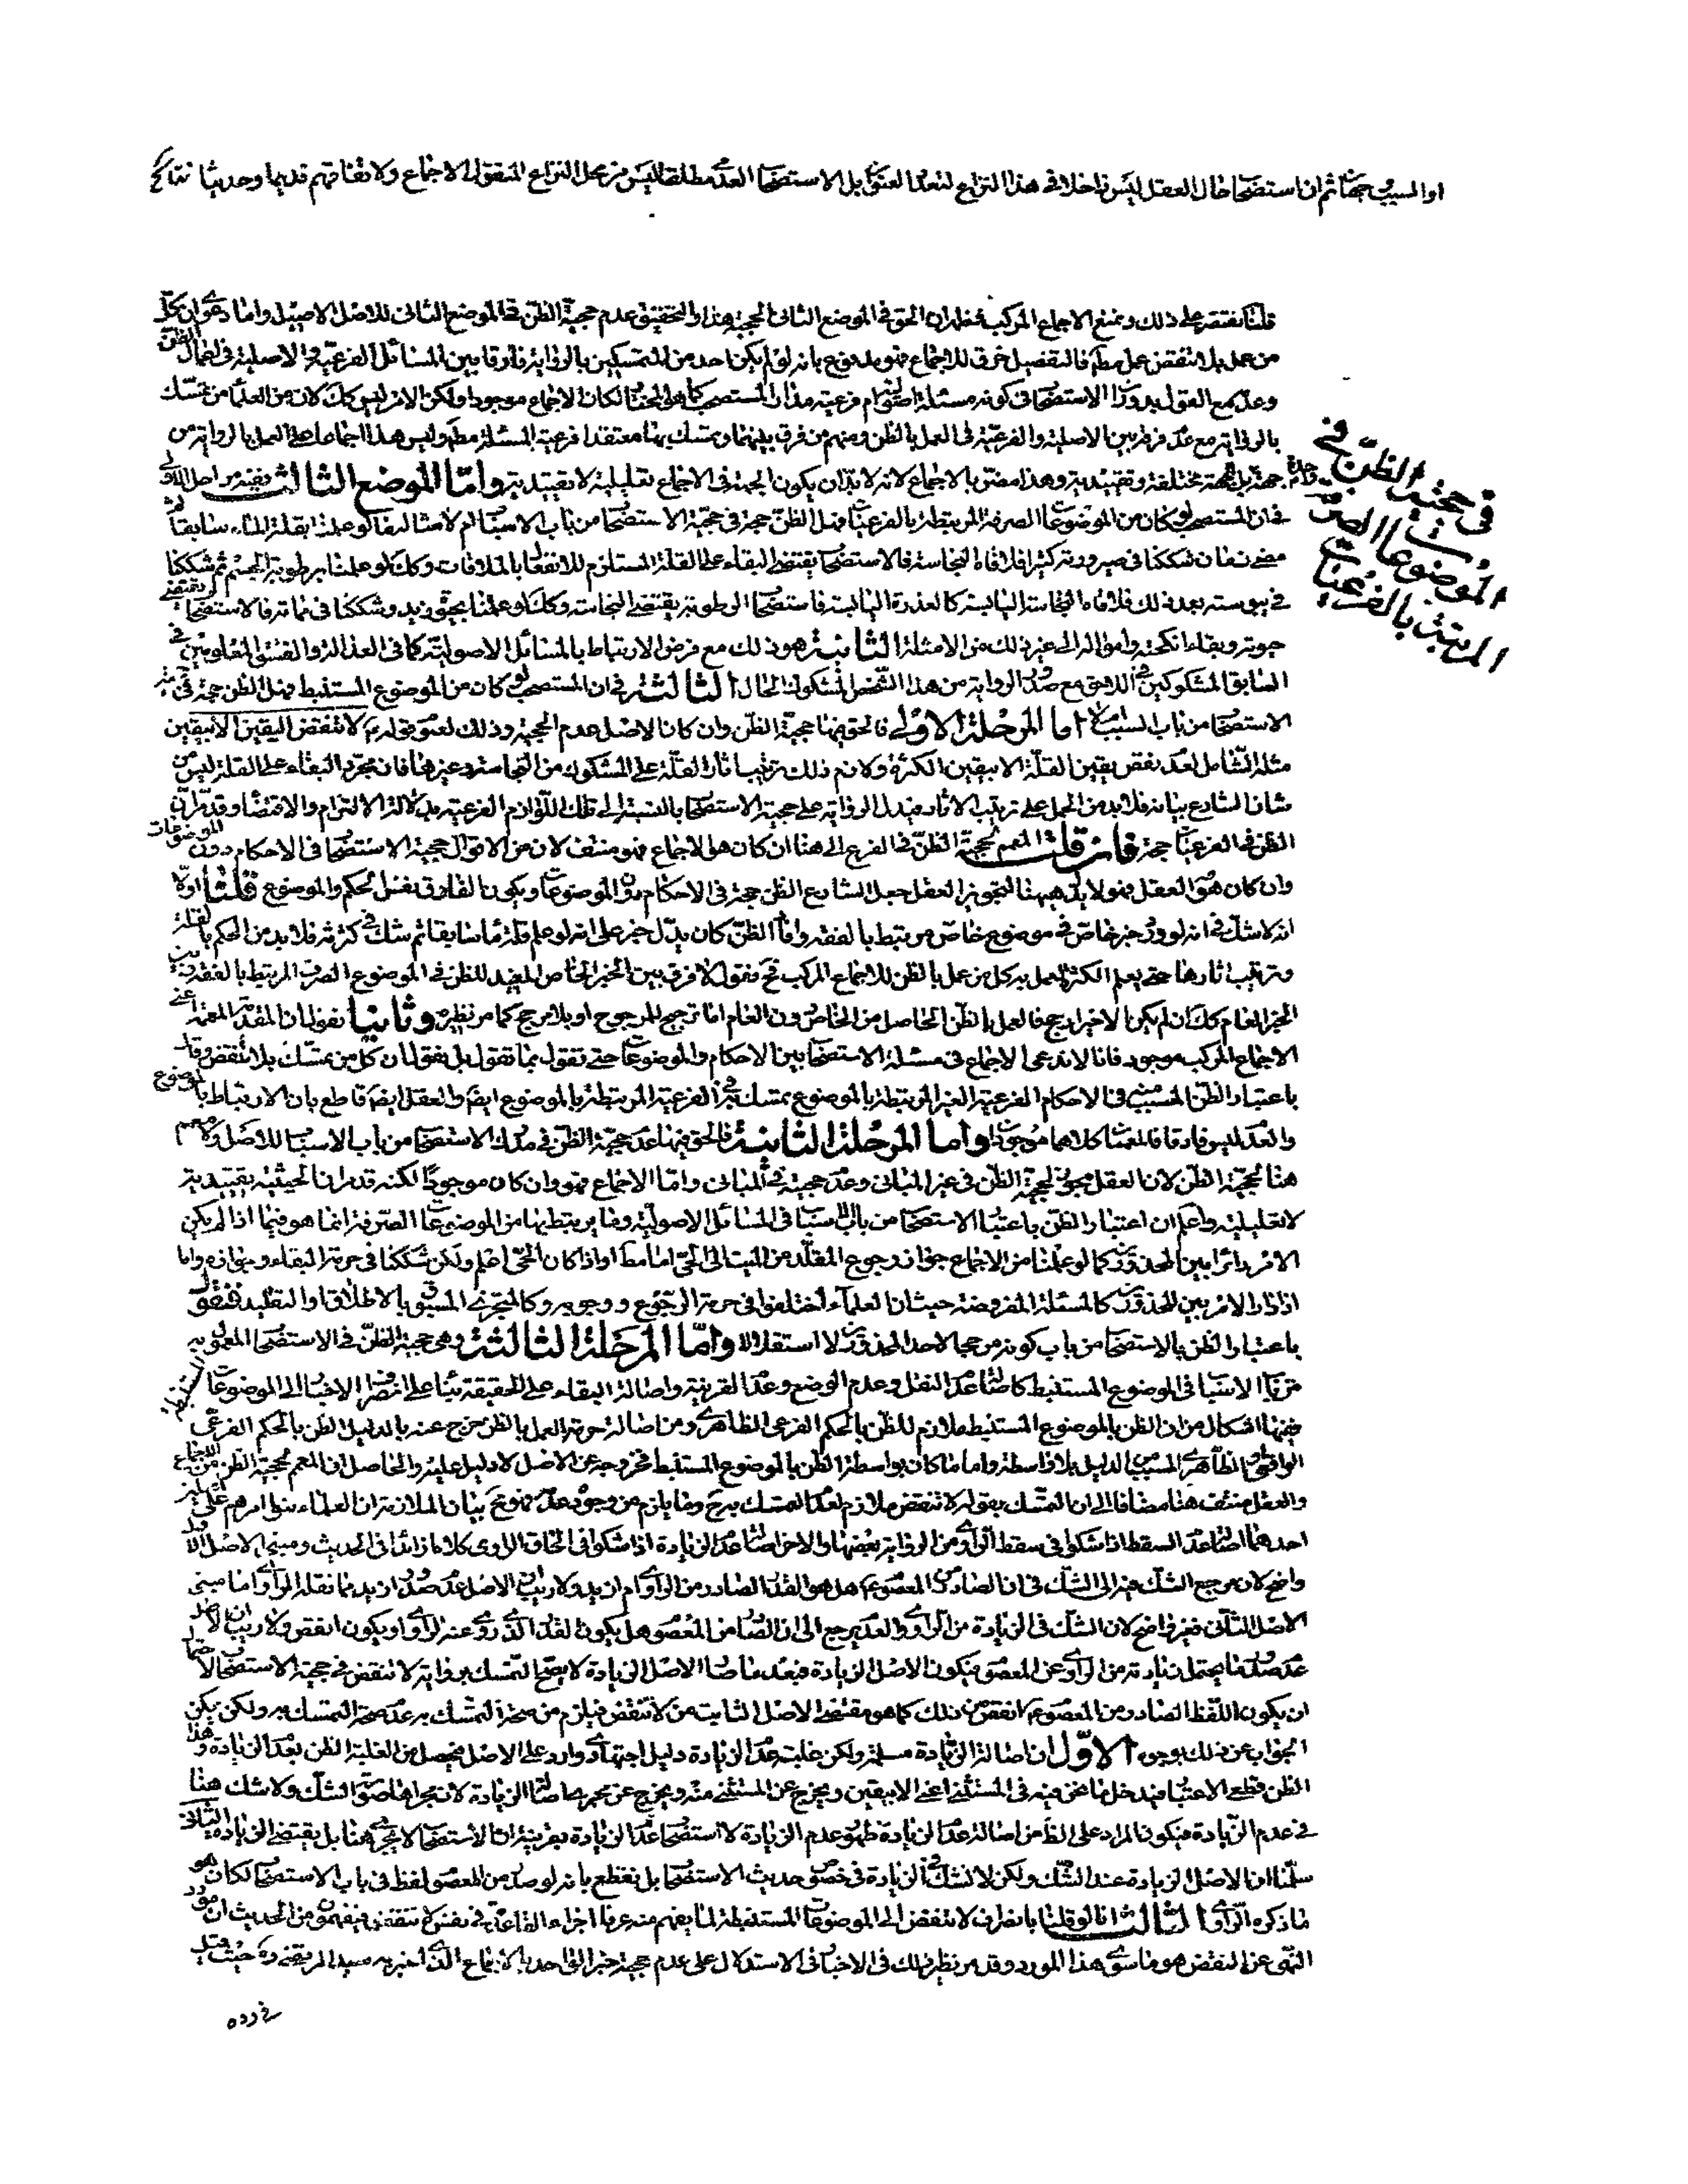 او السبب جهتا ثم ان استصحاب حال العقل ليس داخلا فى هذا النزاع بل الاستصحاب العدمى مطلقا ليس من محل النزاع المنقول الاجماع ولاتفاقهم قديما وحديثا
قلنا نقتصر على ذلك ونمنع الاجماع المركب فظهر ان الحق فى الموضع الثانى الحجية هذا والتحقيق عدم حجية الظن فى الموضع الثانى للاصل الاصيل واما دعوى ان كل
من عمل بلا تنقض عمل مط فالتفصيل خرق للاجماع فهو مدفوع بانه لو لم يكن احد من المتمسكين بالرواية فارقا بين المسائل الفرعية والاصلية فى اعمال الظن
وعدمه مع القول بدوران الاستصحاب فى كونه مسئلة اصولية ام فرعية مدار المستصحب كما هو الحق لكان الاجماع موجودا ولكن الامر ليس كك لان من العلماء من تمسك
بالرواية مع عدم فرقه بين الاصلية والفرعية فى العمل بالظن ومنهم من فرق بينهما وتمسك بها معتقدا فرعية المسئلة مط وليس هذا اجماعا على العمل بالرواية من
جهة واحدة بل من جهة مختلفة وتقييدية وهذا مضر بالاجماع لانه لا بد ان يكون الجهة فى الاجماع تعليلية لا تقييدية واما الموضع الثالث ففيه مراحل الاولى
فى ان المستصحب لو كان من الموضوعات الصرفة المرتبطة بالفرعيات فهل الظن حجة فى حجية الاستصحاب من باب الاسباب ام لا مثاله فيما لو علمنا بقلة الماء سابقا ثم
مضى زمان شككنا فى صيرورته كثيرا فلاقاه النجاسة فالاستصحاب يقتضى البقاء على القلة المستلزم للانفعال بالملاقات وكك لو علمنا برطوبة الجسم ثم شككنا
فى يبوسته بعد ذلك فلاقاه النجاسة اليابسة كالعذرة اليابسة فاستصحاب الرطوبة يقتضى النجاسة وكك لو علمنا بحيوة زيد وشككنا فى مماته فالاستصحاب يقتضى
حيوته وبقاء انكحته وامواله الى غير ذلك من الامثلة الثانية هو ذلك مع فرض الارتباط بالمسائل الاصولية كما فى العدالة والفسق المعلومين فى
السابق المشكوكين فى اللاحق مع صدور الرواية من هذا الشخص المشكوك الحال الثالثة فى ان المستصحب لو كان من الموضوع المستنبط فهل الظن حجة فى حجية
الاستصحاب من باب السبب ام لا اما المرحلة الاولى فالحق فيها حجية الظن وان كان الاصل عدم الحجية وذلك لعموم قوله ع لا تنقض اليقين الا بيقين
مثله الشامل لعدم نقض يقين القلة الا بيقين الكثرة ولازم ذلك ترتيب اثار القلة على المشكوك من النجاسة وغيرها فان مجرد البقاء على القلة ليس من
شان الشارع بيانه فلا بد من الحمل على ترتيب الاثار فيدل الرواية على حجية الاستصحاب بالنسبة الى تلك اللوازم الفرعية بدلالة الالتزام والاقتضاء وقد مر ان
الظن فى الفرعيات حجة فان قلت المعمم لحجية الظن فى الفرع الى هنا ان كان هو الاجماع فهو منتف لان من الاقوال حجية الاستصحاب فى الاحكام دون الموضوعات
وان كان هو العقل فهو لا يدل هيهنا لتجويز العقل جعل الشارع الظن حجة فى الاحكام دون الموضوعات ويكون الفارق نفس الحكم والموضوع قلنا اولا
انه لا شك فى انه لو ورد خبر خاص فى موضوع خاص مرتبط بالفقه وافاد الظن كان يدل خبر على انه لو علم قلة ماء سابقا ثم شك فى كثرته فلا بد من الحكم بالقلة
وترتيب اثارها حتى يعلم الكثرة لعمل به كل من عمل بالظن للاجماع المركب فح نقول لا فرق بين الخبر الخاص المفيد للظن فى الموضوع الصرف المرتبط بالفقه وبين
الخبر العام كك ان لم يكن الاخير ارجح فالعمل بالظن الحاصل من الخاص دون العام اما ترجيح للمرجوح او بلا مرجح كما مر نظيره وثانيا نقول ان المقدمة المعممة اعنى
الاجماع المركب موجود فانا لا ندعى الاجماع فى مسئلة الاستصحاب بين الاحكام والموضوعات حتى تقول بما تقول بل نقول ان كل من تمسك بلا تنقض وقال
باعتبار الظن المسبب منه فى الاحكام الفرعية الغير المرتبطة بالموضوع تمسك به فى الفرعية المرتبطة بالموضوع ايضا والعقل ايضا قاطع بان الارتباط بالموضوع
والعدم ليس فارقا فالمعممان كلاهما موجودان واما المرحلة الثانية فالحق فيها عدم حجية الظن فى مدرك الاستصحاب من باب الاسباب للاصل ولا معمم
هنا لحجية الظن لان العقل مجوز لحجية الظن فى غير المبانى وعدم حجيته فى المبانى واما الاجماع فهو وان كان موجودا لكنه قد مر ان الحيثية تقييدية
لا تعليلية واعلم ان اعتبار الظن باعتبار الاستصحاب من باب الاسباب فى المسائل الاصولية وما يرتبط بها من الموضوعات الصرفة انما هو فيما اذا لم يكن
الامر دائرا بين المحذورين كما لو علمنا من الاجماع جواز رجوع المقلد من الميت الى الحى اما مط او اذا كان الحى اعلم ولكن شككنا فى حرمة البقاء وجوازه واما
اذا دار الامر بين المحذورين كالمسئلة المفروضة حيث ان العلماء اختلفوا فى حرمة الرجوع ووجوبه وكالمتجزى المسبوق بالاطلاق او التقليد فنقول
باعتبار الظن بالاستصحاب من باب كونه مرجحا لاحد المحذورين لا استقلالا واما المرحلة الثالثة وهى حجية الظن فى الاستصحاب المعمول به
من باب الاسباب فى الموضوع المستنبط كاصالة عدم النقل وعدم الوضع وعدم القرينة واصالة البقاء على الحقيقة بناء على انصراف الاخبار الى الموضوعات المستنبطة
ففيها اشكال من ان الظن بالموضوع المستنبط ملازم للظن بالحكم الفرعى الظاهرى ومن اصالة حرمة العمل بالظن خرج عنه بالدليل الظن بالحكم الفرعى
الواقعى والظاهرى المسبب من الدليل بلا واسطة واما ما كان بواسطة الظن بالموضوع المستنبط فخروجه عن الاصل لا دليل عليه والحاصل ان المعمم لحجية الظن من الاجماع
والعقل منتف هنا مضافا الى ان التمسك بقوله لا تنقض ملازم لعدم التمسك به ح وما يلزم من وجوده عدمه فهو مح بيان الملازمة ان العلماء بنوا امرهم على اصلين
احدهما اصالة عدم السقط اذا شكوا فى سقط الراوى من الرواية بعضها والاخر اصالة عدم الزيادة اذا شكوا فى الحاق الراوى كلاما زائدا فى الحديث ومبنى الاصل الاول
واضح لان مرجع الشك فيه الى الشك فى ان الصادر من المعصوم ع هل هو القدر الصادر من الراوى ام ازيد ولا ريب ان الاصل عدم صدور ازيد مما نقله الراوى واما مبنى
الاصل الثانى فغير واضح لان الشك فى الزيادة من الراوى والعدم يرجع الى ان الصادر من المعصوم هل يكون القدر الذى روى عنه الراوى او يكون انقص ولا ريب ان الاصل
عدم صدور ما يحتمل زيادته من الراوى عن المعصوم فيكون الاصل الزيادة فبعد ما صار الاصل الزيادة لا يصح التمسك برواية لا تنقض فى حجية الاستصحاب لاحتمال
ان يكون اللفظ الصادر من المعصوم ع انقص من ذلك كما هو مقتضى الاصل الثابت من لا تنقض فيلزم من صحة التمسك به عدم صحة التمسك به ولكن يمكن
الجواب عن ذلك بوجوه الاول ان اصالة الزيادة مسلمة ولكن غلبة عدم الزيادة دليل اجتهادى وارد على الاصل فيحصل من الغلبة الظن بعدم الزيادة وهذا
الظن قطعى الاعتبار فيدخل ما نحن فيه فى المستثنى اعنى الا بيقين ويخرج عن المستثنى منه ويخرج عن مجرى اصالة الزيادة لان مجراها صورة الشك ولا شك هنا
فى عدم الزيادة فيكون المراد على الظ من اصالة عدم الزيادة ظهور عدم الزيادة لا استصحاب عدم الزيادة بقرينة ان الاستصحاب لا يجرى هنا بل يقتضى الزيادة الثانى
سلمنا ان الاصل الزيادة عند الشك ولكن لا نشك فى الزيادة فى خصوص حديث الاستصحاب بل نقطع بانه لو صدر من المعصوم لفظ فى باب الاستصحاب لكان هو
ما ذكره الراوى الثالث انا لو قلنا بانصراف لا تنقض الى الموضوعات المستنبطة لما يفهم منه عرفا اجراء القاعدة فى نفس لا تنقض فيفهمون من الحديث ان مورد
النهى عن النقض هو ما سوى هذا المورد وقد مر نظير ذلك فى الاخبار فى الاستدلال على عدم حجية خبر الواحد بالاجماع الذى اخبر به سيدنا المرتضى ره حيث قيل
فى رده
فى حجية الظن فى
الموضوعات الصرفة
المرتبطة بالفرعيات